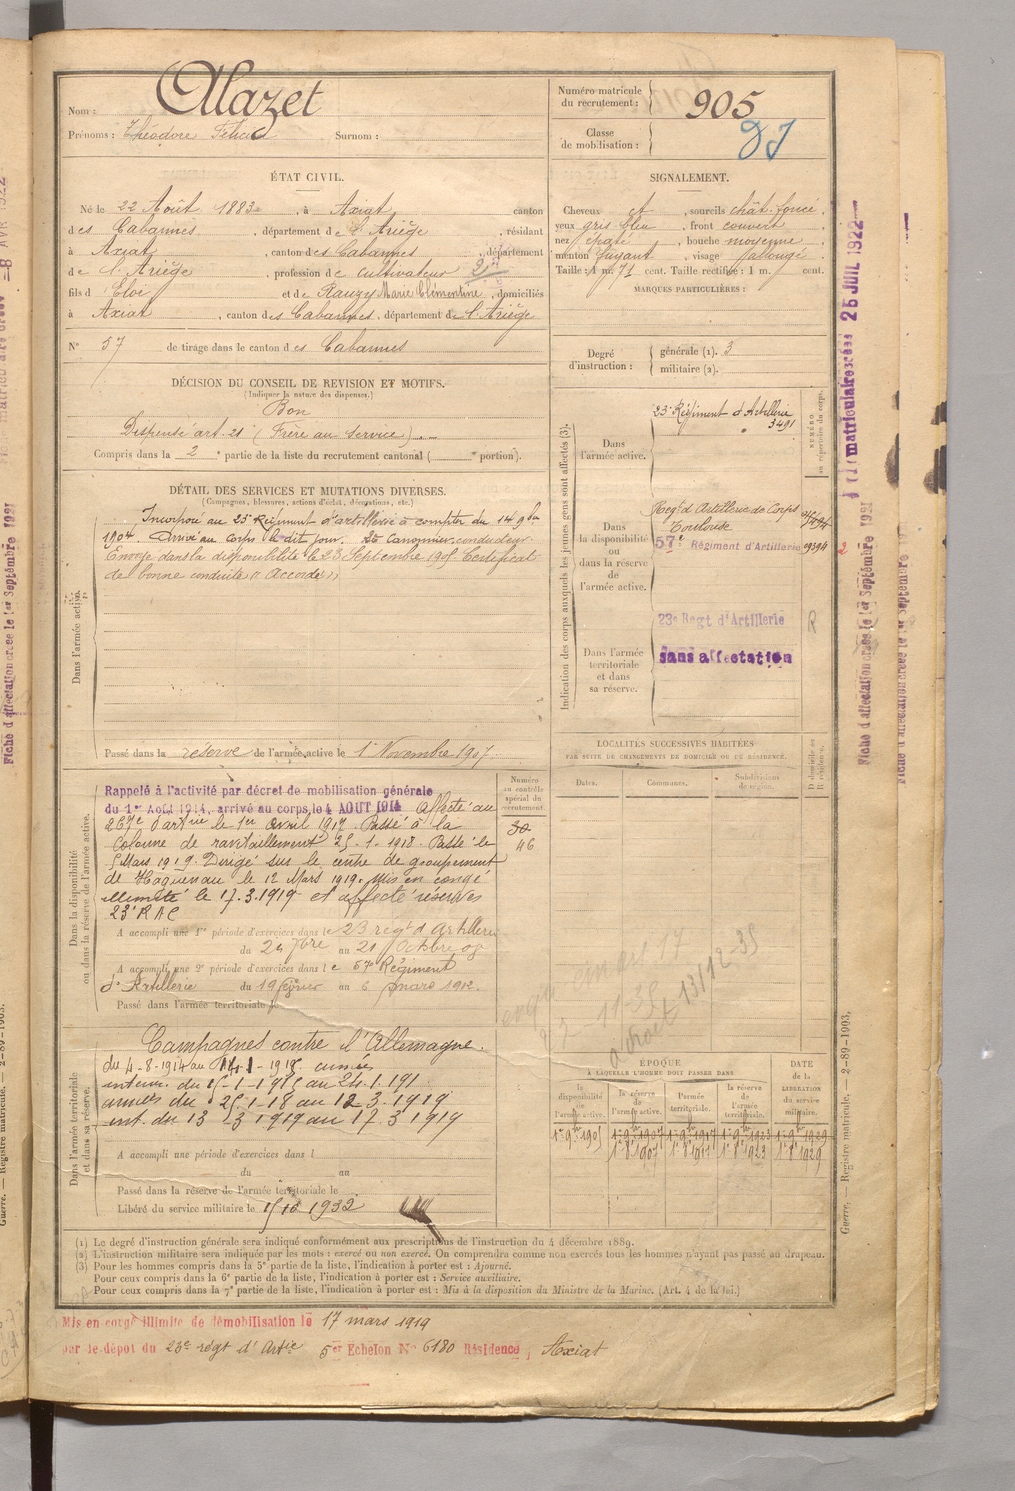 Nom : Alazet
Prénoms : Théodore Félicien Surnom :
Numéro matricule
du recrutement : 905
Classe
de mobilisation :
ÉTAT CIVIL.
Né le 22 Août 1883, à Axiat canton
des Cabannes, département de l'Ariège, résidant
à Axiat, canton des Cabannes, département
de l'Ariège, profession de cultivateur
fils d'Eloi et de Rauzy Marie Clémentine, domiciliés
à Axiat, canton des Cabannes, département de l'Ariège
N° 57 de tirage dans le canton des Cabannes
SIGNALEMENT.
Cheveux et, sourcils chât. foncé.
yeux gris bleu, front couvert
nez épaté, bouche moyenne
menton fuyant, visage allongé
Taille : 1 m. 71 cent. Taille rectifiée : 1 m. cent.
MARQUES PARTICULIÈRES :
Degré
d'instruction :
générale (1). 3
militaire (2).
DÉCISION DU CONSEIL DE REVISION ET MOTIFS.
(Indiquer la nature des dispenses.)
Bon
Dispensé art. 21 (Frère au service)
Compris dans la 2e partie de la liste du recrutement cantonal ( e portion).
DÉTAIL DES SERVICES ET MUTATIONS DIVERSES.
(Campagnes, blessures, actions d'éclat, décorations, etc.)
Dans l'armée active.
Incorporé au 23e Régiment d'artillerie à compter du 14 9bre
1904. Arrivé au corps le dit jour. 2e Canonnier conducteur.
Envoyé dans la disponibilité le 23 Septembre 1905. Certificat
de bonne conduite « Accordé »
Passé dans la réserve de l'armée active le 1er Novembre 1907.
Indication des corps auxquels les jeunes gens sont affectés (3).
NUMÉRO
au répertoire du corps.
Dans
l'armée active.
23e Régiment d'Artillerie
3491
Dans
la disponibilité
ou
dans la réserve
de
l'armée active.
Régt d'Artillerie de Corps
Toulouse
57e Régiment d'Artillerie
23e Regt d'Artillerie
R
Dans l'armée
territoriale
et dans
sa réserve.
sans affectation
Dans la disponibilité
ou dans la réserve de l'armée active.
Rappelé à l'activité par décret de mobilisation générale
du 1er Août 1914, arrivé au corps le 4 AOUT 1914 Affecté au
267e d'artrie le 1er avril 1917. Passé à la
Colonne de ravitaillement 25-1-1918. Passé le
5 Mars 1919. Dirigé sur le centre de groupement
de Haguenau le 12 Mars 1919. Mis en congé
illimité le 17.3.1919 et affecté réserves
23e RAC
A accompli une 1re période d'exercices dans le 23 régt d'Artillerie
du au 21 Octobre 08
A accompli une 2e période d'exercices dans le 57e Régiment
d'Artillerie du 19 février au 6 mars 1912.
Passé dans l'armée territoriale le
Numéro
au contrôle
spécial du
recrutement.
30
46
LOCALITÉS SUCCESSIVES HABITÉES
PAR SUITE DE CHANGEMENTS DE DOMICILE OU DE RÉSIDENCE.
Dates. Communes. Subdivisions
de région.
D domicile ou
R résidence.
Dans l'armée territoriale
et dans sa réserve.
Campagnes contre l'Allemagne.
du 4-8-1914 au 14-1-1915 armées
intérieur du 15-1-1915 au 24.1.191
armées du 25-1-18 au 12.3.1919
int. du 13 3 1919 au 17.3.1919
A accompli une période d'exercices dans l
du au
Passé dans la réserve de l'armée territoriale le
Libéré du service militaire le 15 10 1932
ÉPOQUE
À LAQUELLE L'HOMME DOIT PASSER DANS
la
disponibilité
de
l'armée active.
la réserve
de
l'armée active.
l'armée
territoriale.
la réserve
de
l'armée
territoriale.
DATE
de la
LIBÉRATION
du service
militaire.
1er 9bre 1905 1er 9bre 1907 1er 9bre 1917 1er 9bre 1923 1er 9bre 1929
1er 8bre 1907 1er 8bre 1917 1er 8bre 1923 1er 8bre 1929
(1) Le degré d'instruction générale sera indiqué conformément aux prescriptions de l'instruction du 4 décembre 1889.
(2) L'instruction militaire sera indiquée par les mots : exercé ou non exercé. On comprendra comme non exercés tous les hommes n'ayant pas passé au drapeau.
(3) Pour les hommes compris dans la 5e partie de la liste, l'indication à porter est : Ajourné.
Pour ceux compris dans la 6e partie de la liste, l'indication à porter est : Service auxiliaire.
Pour ceux compris dans la 7e partie de la liste, l'indication à porter est : Mis à la disposition du Ministre de la Marine. (Art. 4 de la loi.)
Mis en congé illimité de démobilisation le 17 mars 1919
par le dépôt du 23e régt d'Artie 5er Echelon No 6180 Résidence, Axiat
matriculaire créée 25 JUIL 1922
Fiche d'affectation créée le 1er Septembre 1921
Guerre. — Registre matricule. — 2-89-1903.